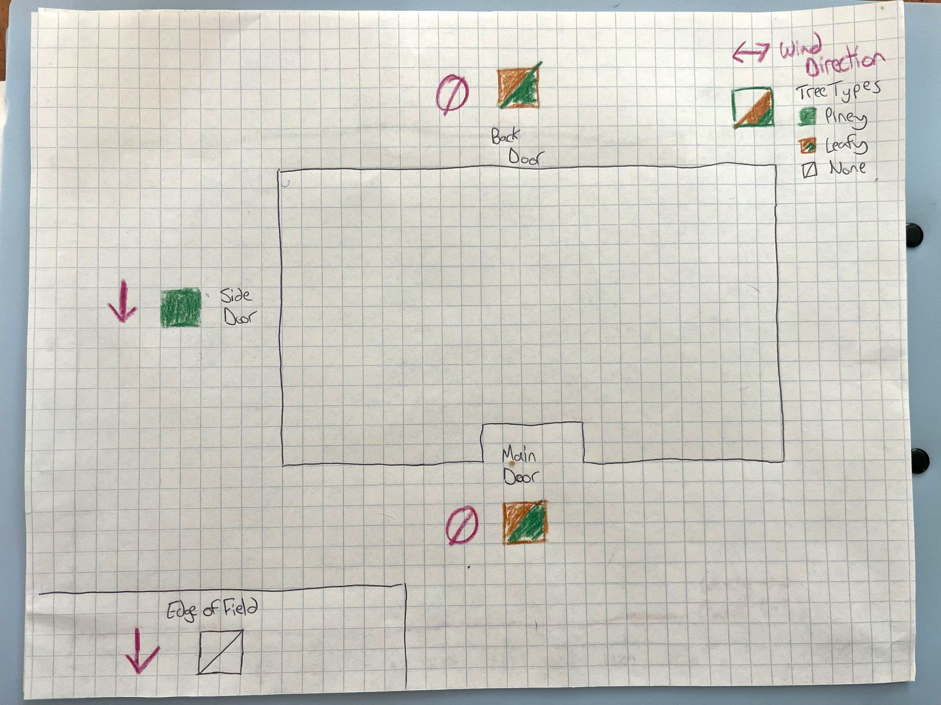 Wind
Direction
Tree Types
Piney
Leafy
None
Back
Door
Side
Door
Main
Door
Edge of Field